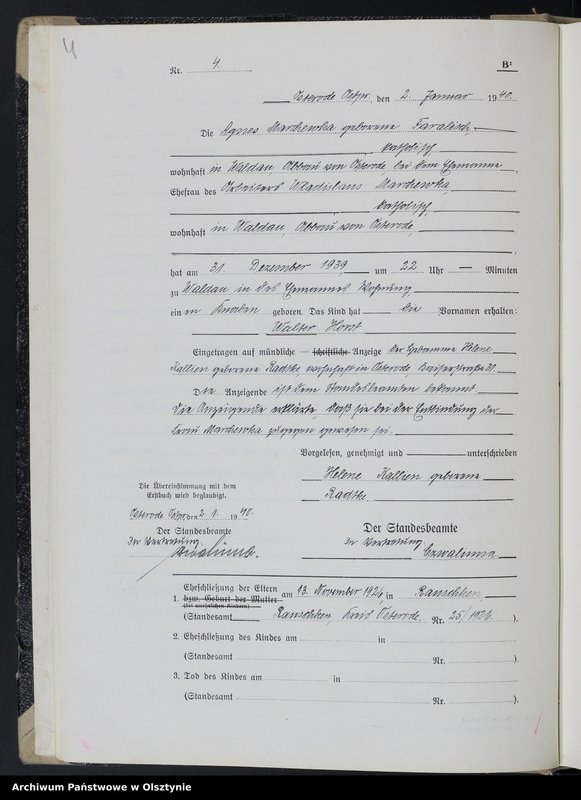 4
Nr. 4. B¹
Osterode Ostpr., den 2. Januar 1940.
Die Agnes Marchewka geborene Faralisch,
katholisch,
wohnhaft in Waldau, Abbau von Osterode, bei dem Ehemanne,
Ehefrau des Arbeiters Wladislaus Marchewka,
katholisch,
wohnhaft in Waldau, Abbau von Osterode,
hat am 31. Dezember 1939 um 22 Uhr — Minuten
zu Waldau in des Ehemannes Wohnung
einen Knaben geboren. Das Kind hat die Vornamen erhalten:
Walter Horst
Eingetragen auf mündliche — schriftliche Anzeige der Hebamme Helene
Kallien geborene Radtke wohnhaft in Osterode, Kaiserstraße 31.
Die Anzeigende ist dem Standesbeamten bekannt
Die Anzeigende erklärte, daß sie bei der Entbindung der
Frau Marchewka zugegen gewesen sei.
Vorgelesen, genehmigt und unterschrieben
Helene Kallien geborene
Radtke.
Die Übereinstimmung mit dem
Erstbuch wird beglaubigt.
Osterode Ostpr. den 2. 1. 1940.
Der Standesbeamte
In Vertretung:
Der Standesbeamte
In Vertretung:
Czwalinna
1. Eheschließung der Eltern
bzw. Geburt der Mutter
(bei unehelichen Kindern)
am 13. November 1926 in Rauschken
(Standesamt Rauschken, Kreis Osterode, Nr. 25/1926.)
2. Eheschließung des Kindes am in
(Standesamt Nr. ).
3. Tod des Kindes am in
(Standesamt Nr. ).
Archiwum Państwowe w Olsztynie